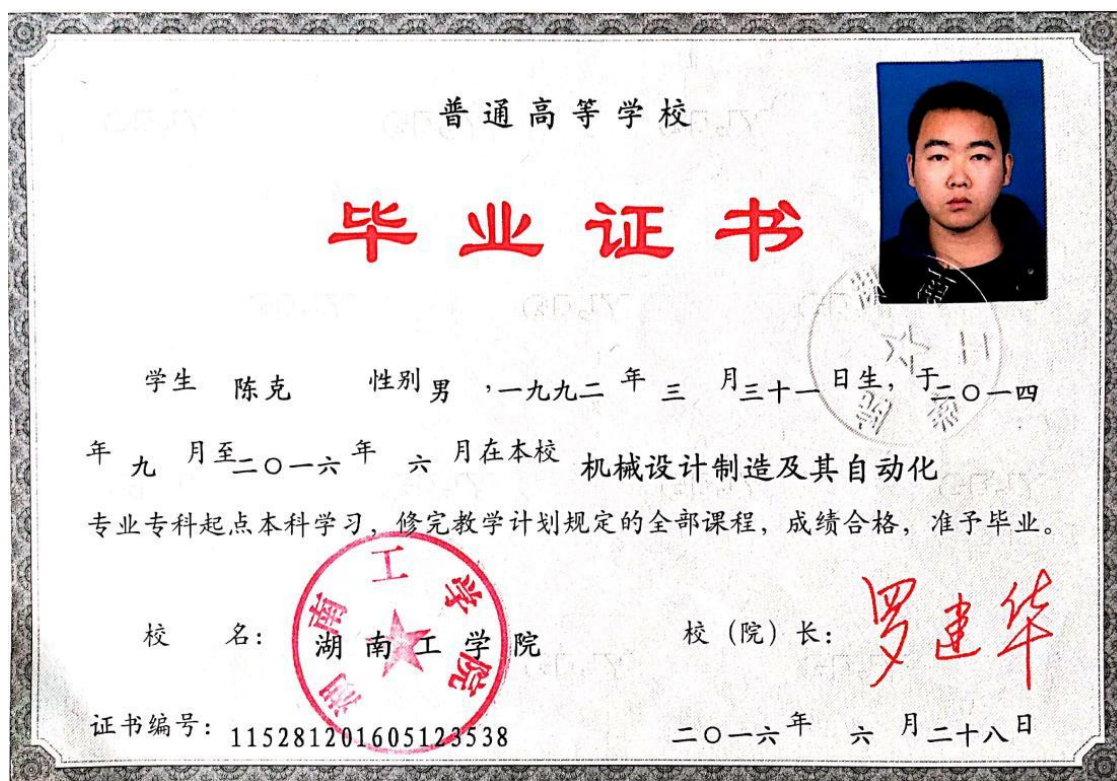 普通高等学校
毕业证书
学生 陈克 性别 男 ，一九九二 年 三 月 三十一 日生，于 二〇一四
年 九 月至 二〇一六 年 六 月在本校 机械设计制造及其自动化
专业专科起点本科学习，修完教学计划规定的全部课程，成绩合格，准予毕业。
校 名： 湖南工学院 校（院）长： 罗建华
湖南工学院
湖南工学院
证书编号：115281201605123538 二〇一六 年 六 月 二十八 日